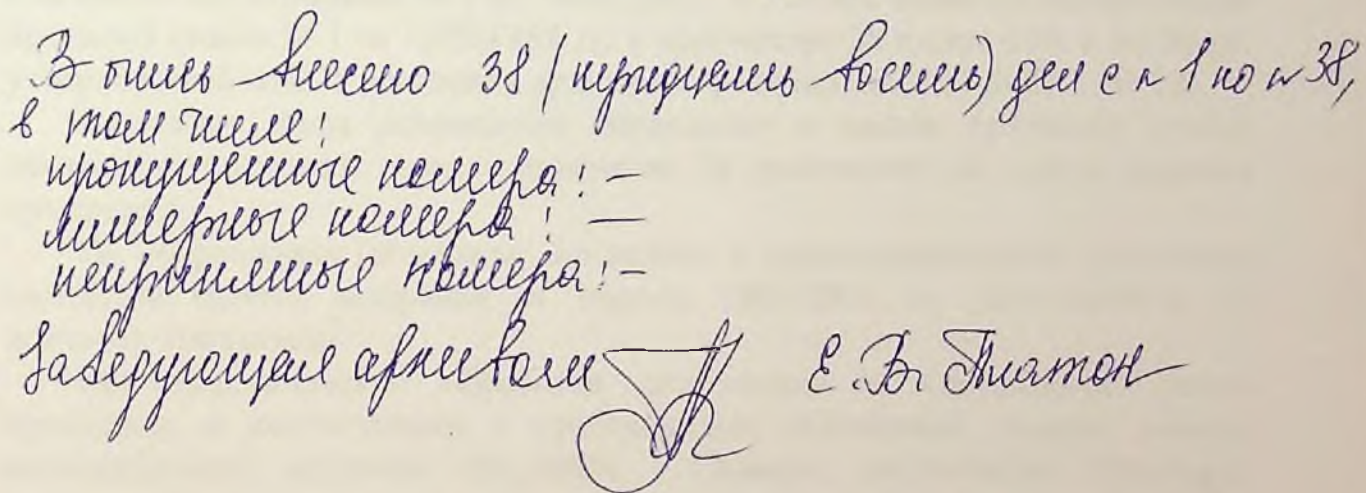 В опись внесено 38 (тридцать восемь) дел с № 1 по № 38,
в том числе:
пропущенные номера: —
литерные номера: —
непринятые номера: —
Заведующая архивом Е.В. Платон